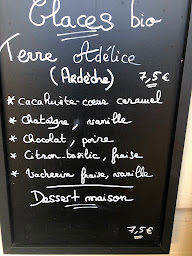 Glaces bio
Terre Adélice
(Ardèche)
7,5€
* Cacahuète-cœur caramel
* Chataîgne, vanille
* Chocolat, poire
* Citron-basilic, fraise
* Vacherin fraise, vanille
Dessert maison
7,5€